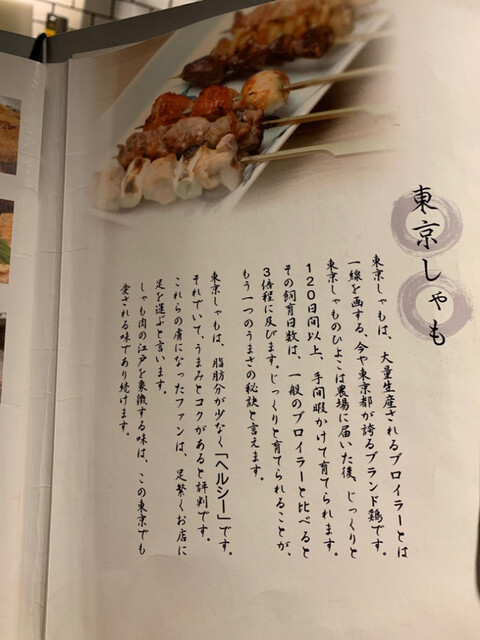 東京しゃも
東京しゃもは、大量生産されるブロイラーとは
一線を画する、今や東京都が誇るブランド鶏です。
東京しゃものひよこは農場に届いた後、じっくりと
120日間以上、手間暇かけて育てられます。
その飼育日数は、一般のブロイラーと比べると
3倍程に及びます。じっくりと育てられることが、
もう一つのうまさの秘訣と言えます。
東京しゃもは、脂肪分が少なく「ヘルシー」です。
それでいて、うまみとコクがあると評判です。
これらの虜になったファンは、足繁くお店に
足を運ぶと言います。
しゃも肉の江戸を象徴する味は、この東京でも
愛される味であり続けます。